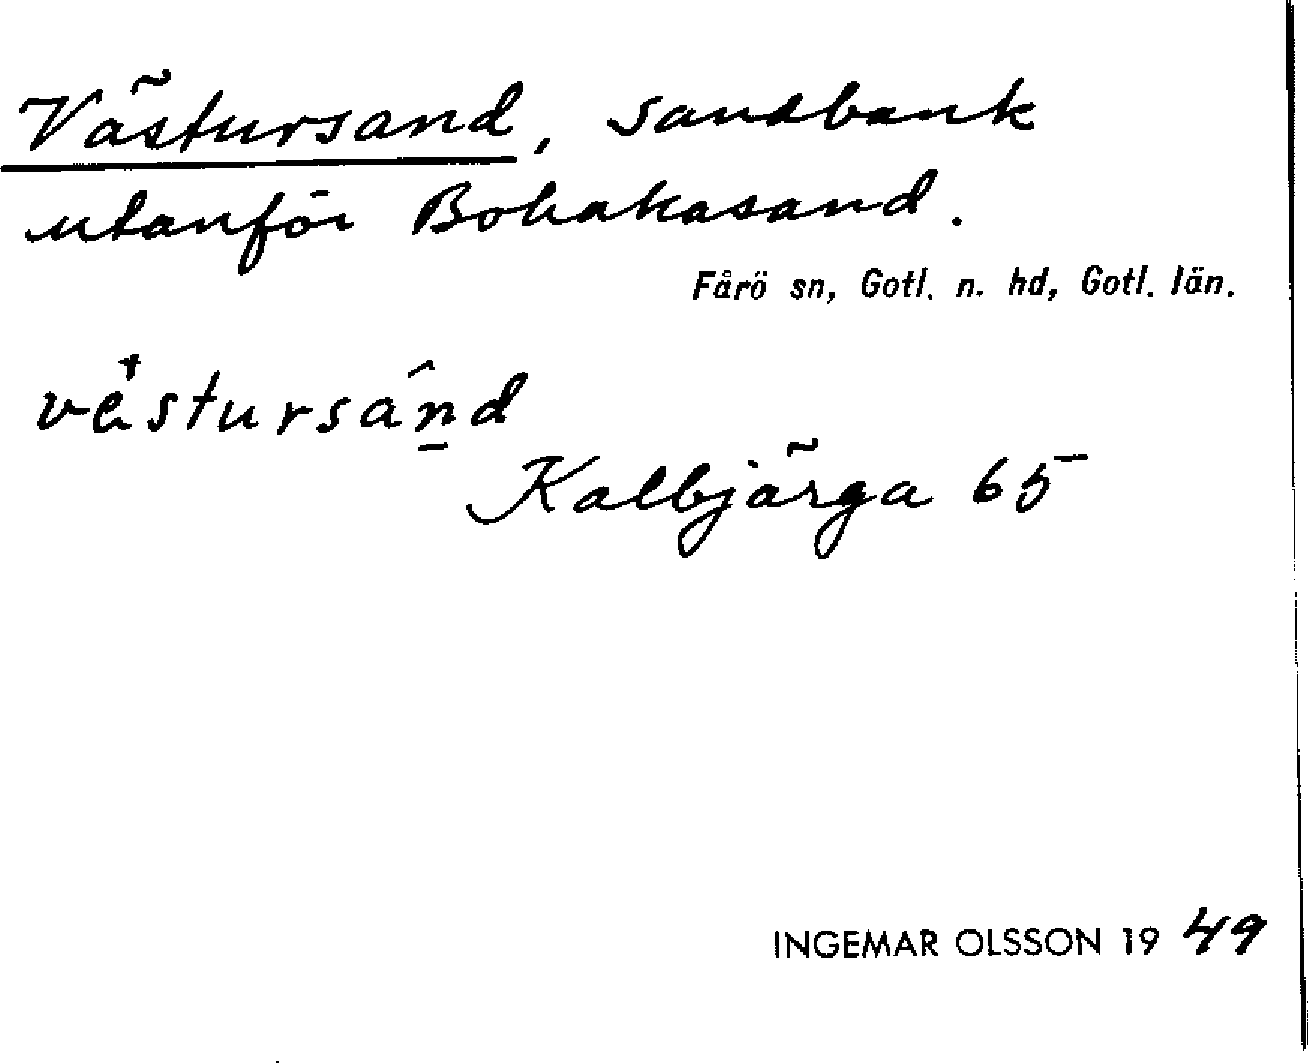 Västursand, sandbank
utanför Bohakasand.
Fårö sn, Gotl. n. hd, Gotl. län.
västursând
Kalbjärga 65
INGEMAR OLSSON 19 49